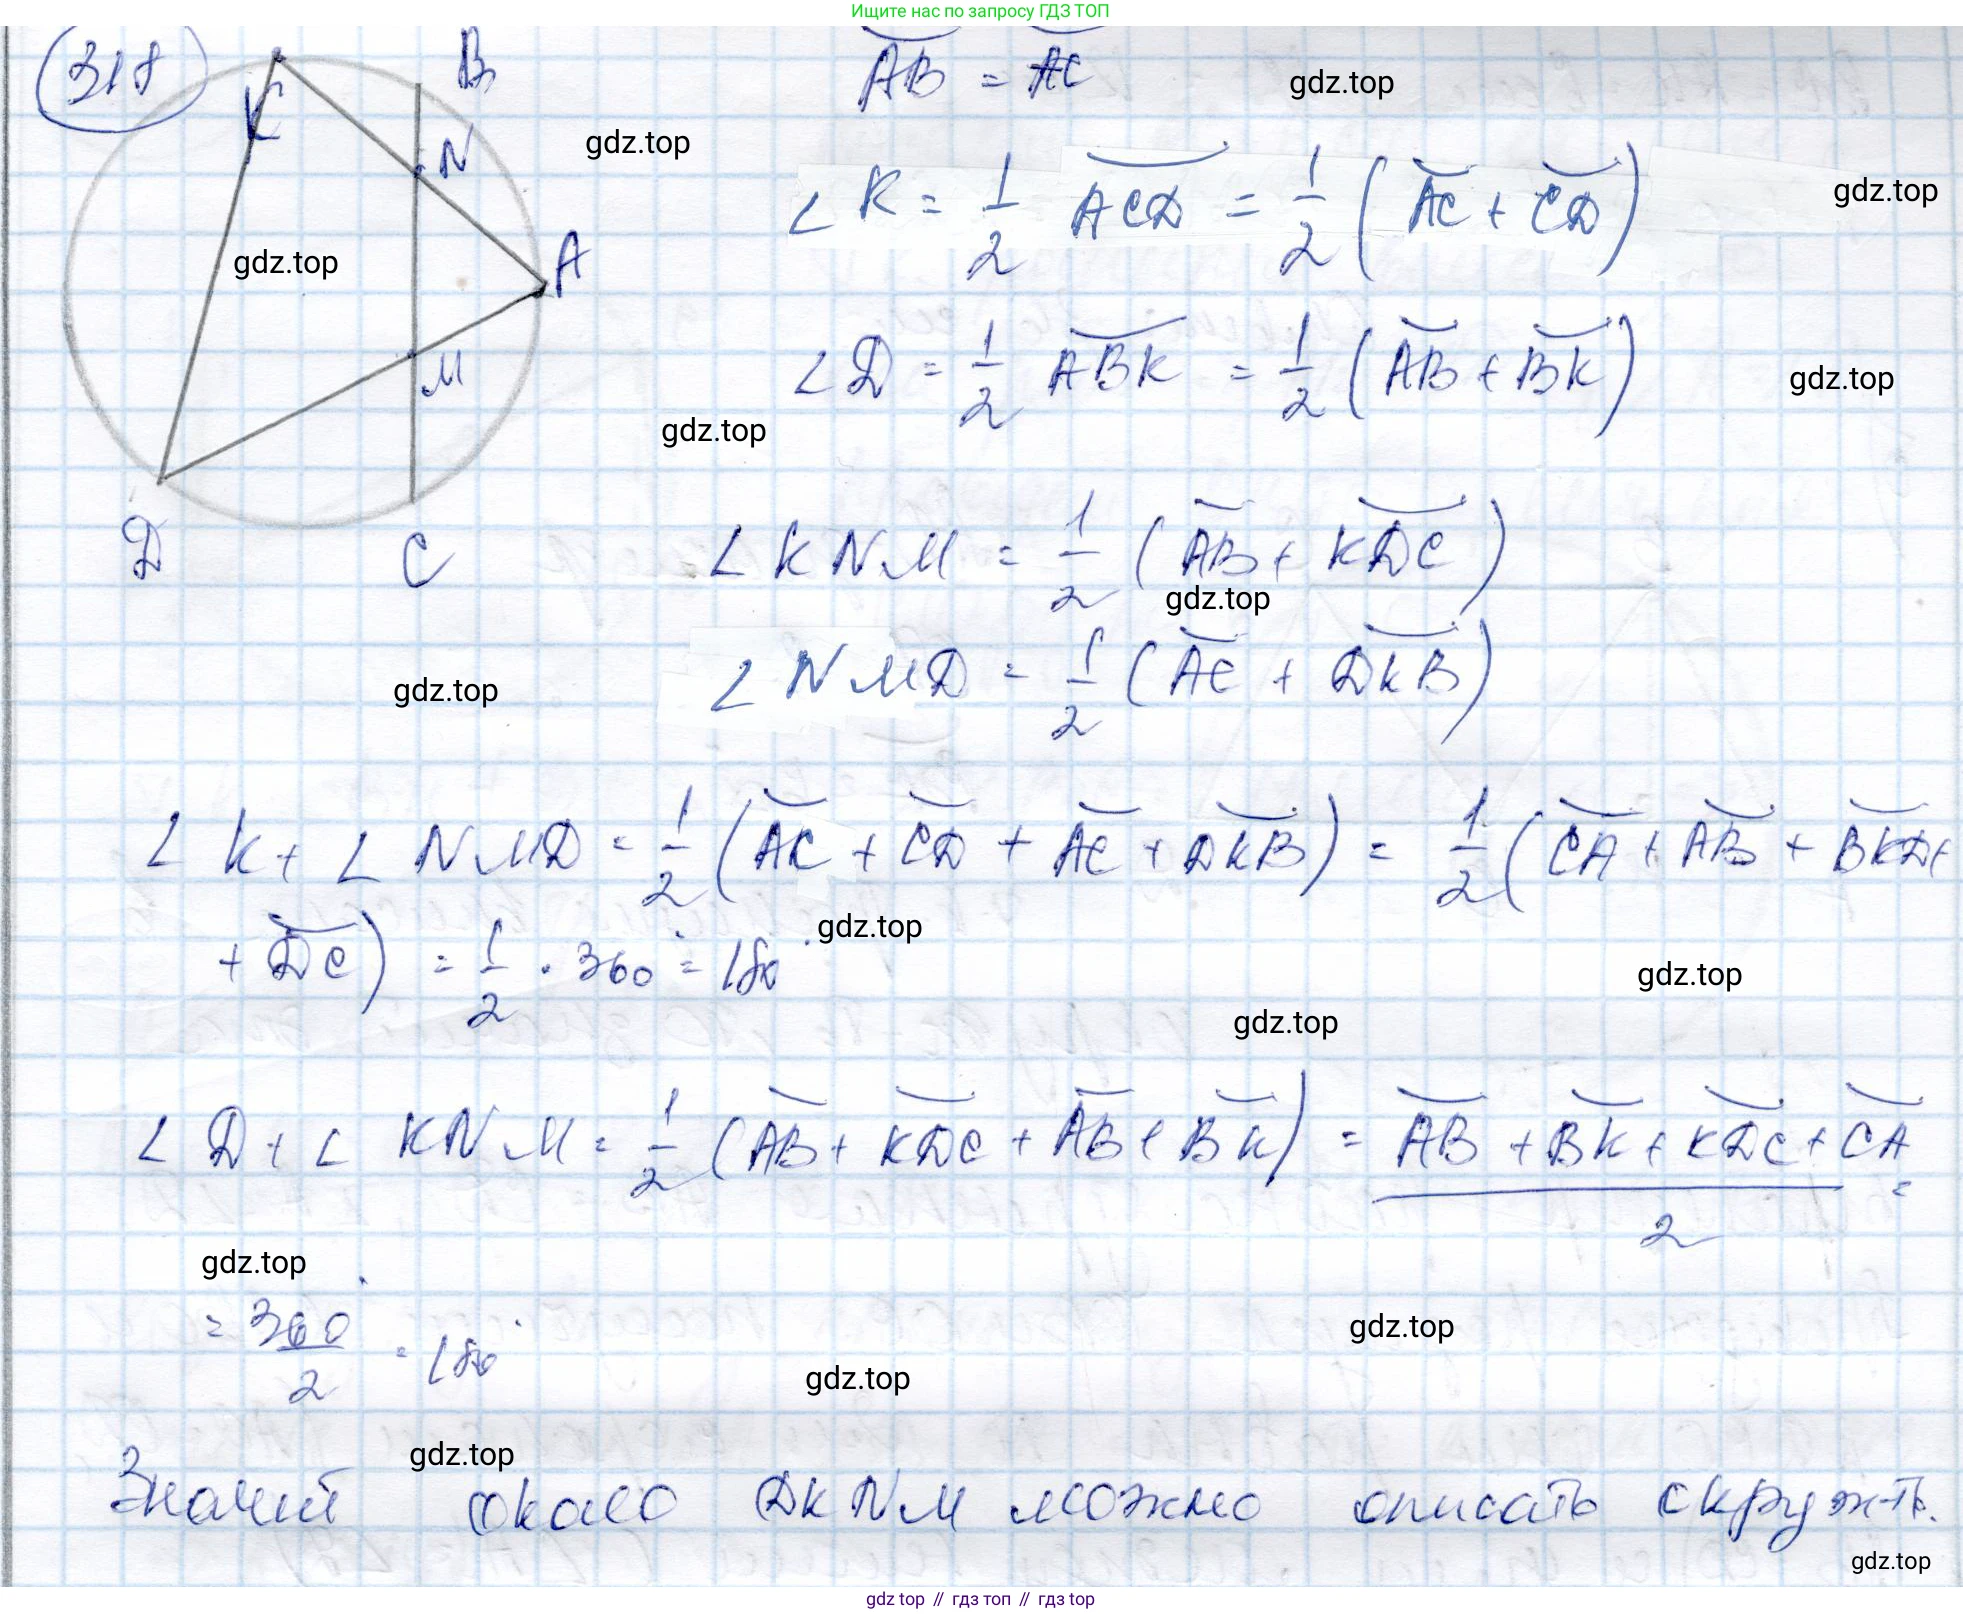 Ищите нас по запросу ГДЗ ТОП
318
K
B
N
A
M
D
C
AB = AC
gdz.top
gdz.top
∠K = 1/2 ACD = 1/2 (AC + CD)
gdz.top
gdz.top
∠D = 1/2 ABK = 1/2 (AB + BK)
gdz.top
gdz.top
∠KNM = 1/2 (AB + KDC)
gdz.top
∠NMD = 1/2 (AC + DKB)
gdz.top
∠K + ∠NMD = 1/2 (AC + CD + AC + DKB) = 1/2 (CA + AB + BKD +
+ DC) = 1/2 · 360° = 180°
gdz.top
gdz.top
gdz.top
∠D + ∠KNM = 1/2 (AB + KDC + AB + BK) = (AB + BK + KDC + CA)/2 =
gdz.top
= 360°/2 = 180°
gdz.top
gdz.top
gdz.top
Значит около DKNM можно описать окруж-ть.
gdz.top
gdz top // гдз топ // гдз top